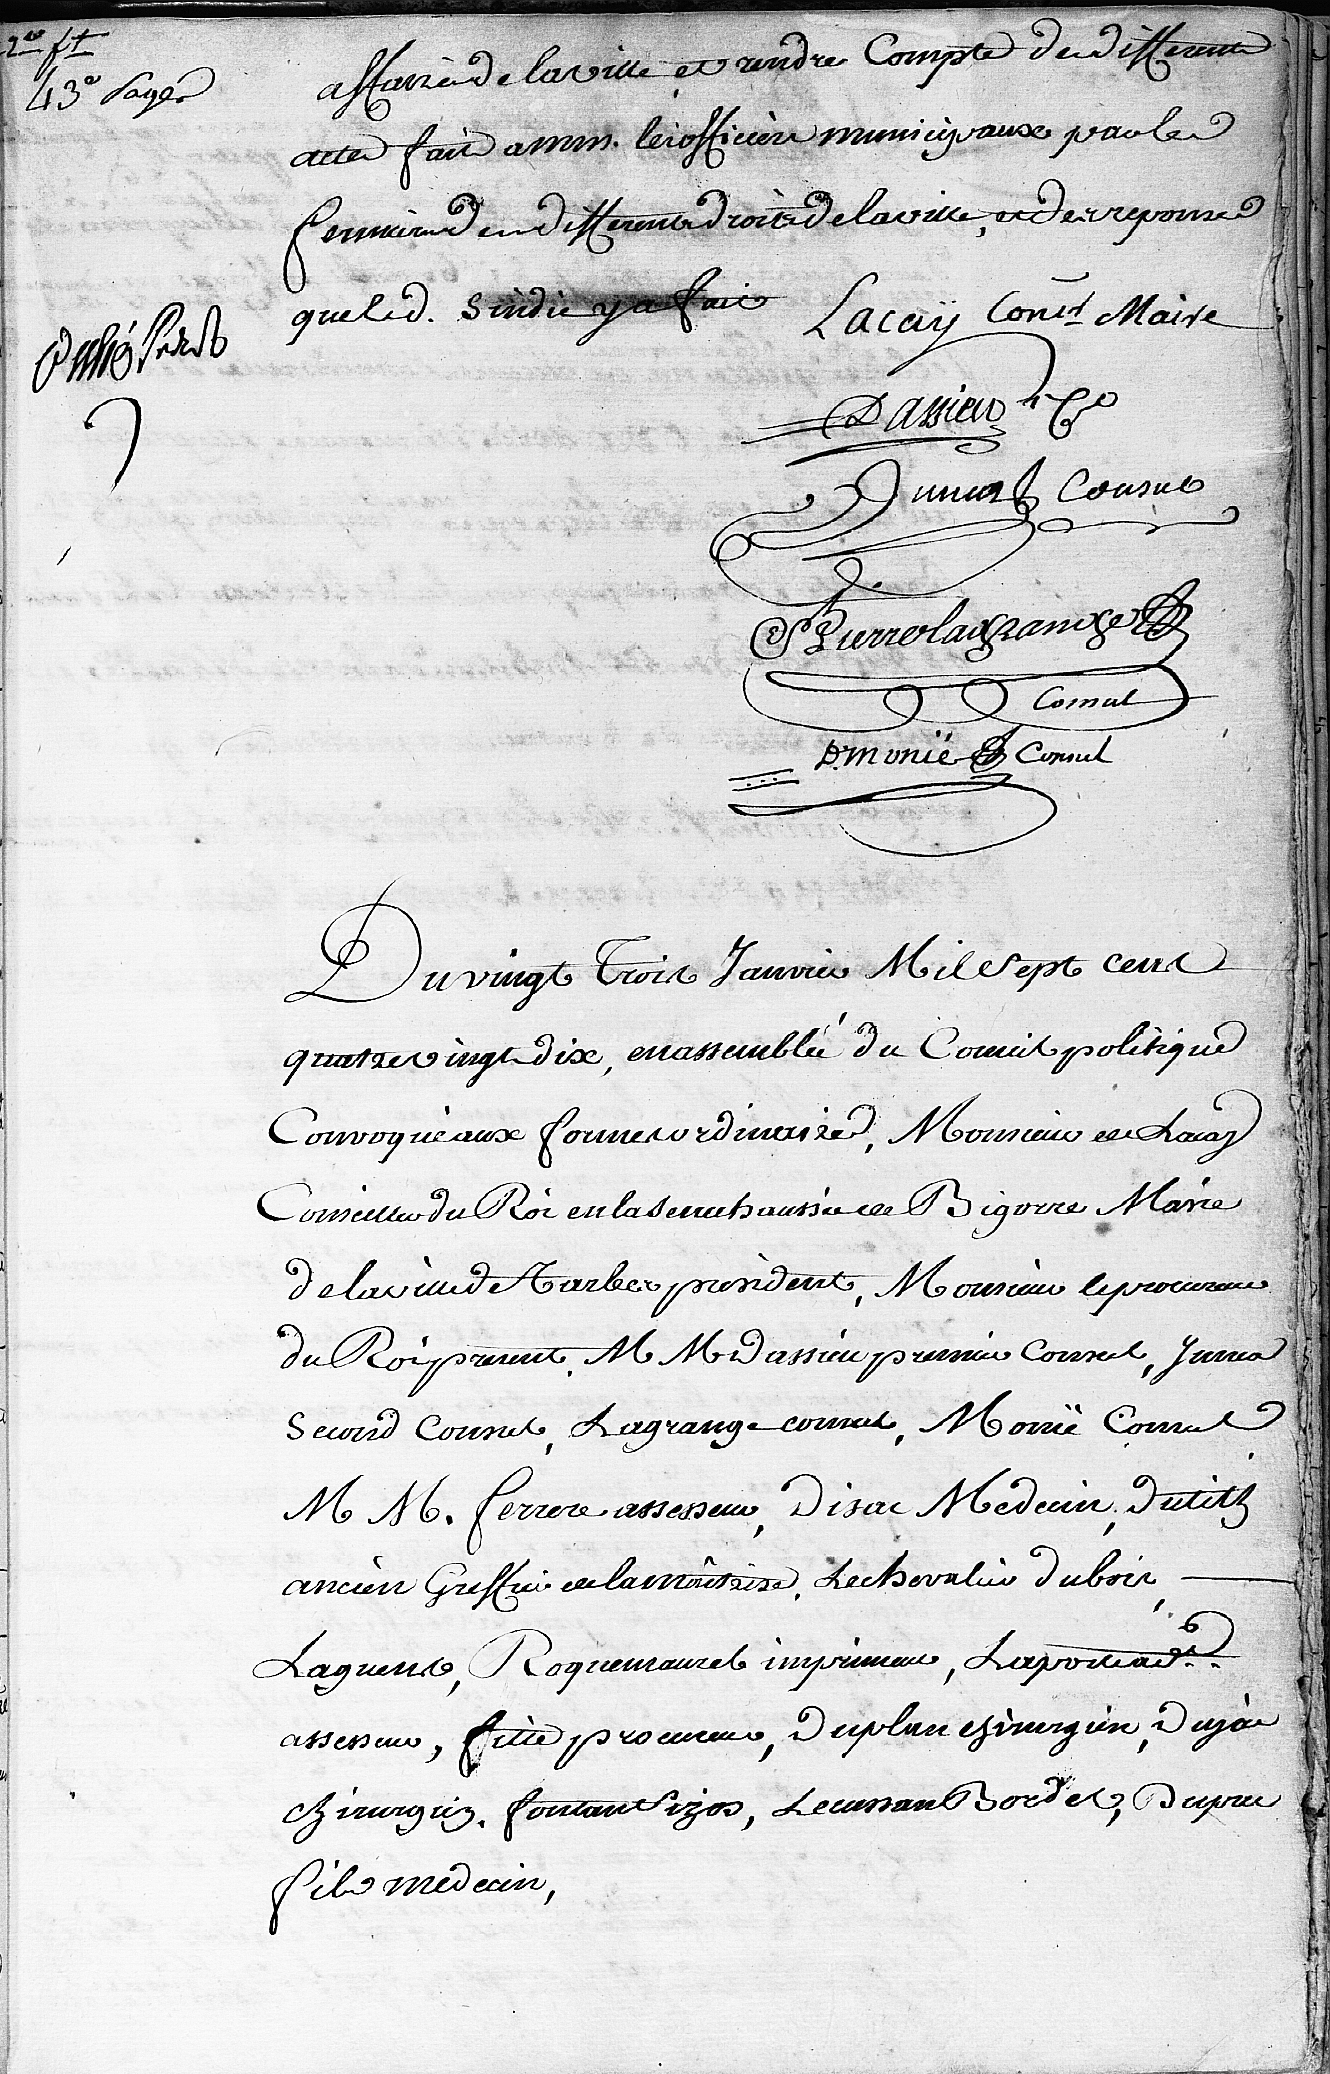 2e ft
43e page
affaires de la ville et rendre Compte des differents
actes fait a mm. les officiers municipaux par les
fermiers des differents droits de la ville, et des reponses
que led. sindic y a fait
Lacay Conser Maire
Dassieu 1er Con
Junca Consul
Pierre lagrange
Consul
D. monié Consul
Du vingt Trois Janvier Mil sept cent
quatre vingt dix, en assemblée du Conseil politique
Convoqué aux formes ordinaires, Monsieur de Lacay
Conseiller du Roi en la senechaussée de Bigorre Maire
de la ville de Tarbes president, Monsieur le procureur
du Roi present, M M Dassieu premier Consul, Junca
second Consul, Lagrange consul, Monié Consul
M M. ferrere assesseur, Disac Medecin, Dutilh
ancien Greffier de la maitrise, Le chevalier dubois,
Laguens, Roquemaurel imprimeur, Laporte
assesseur, fitte procureur, Duplan chirurgien, Dujac
chirurgien, fontan Pijos, Lecussan Bordes, Dupuc
fils medecin,